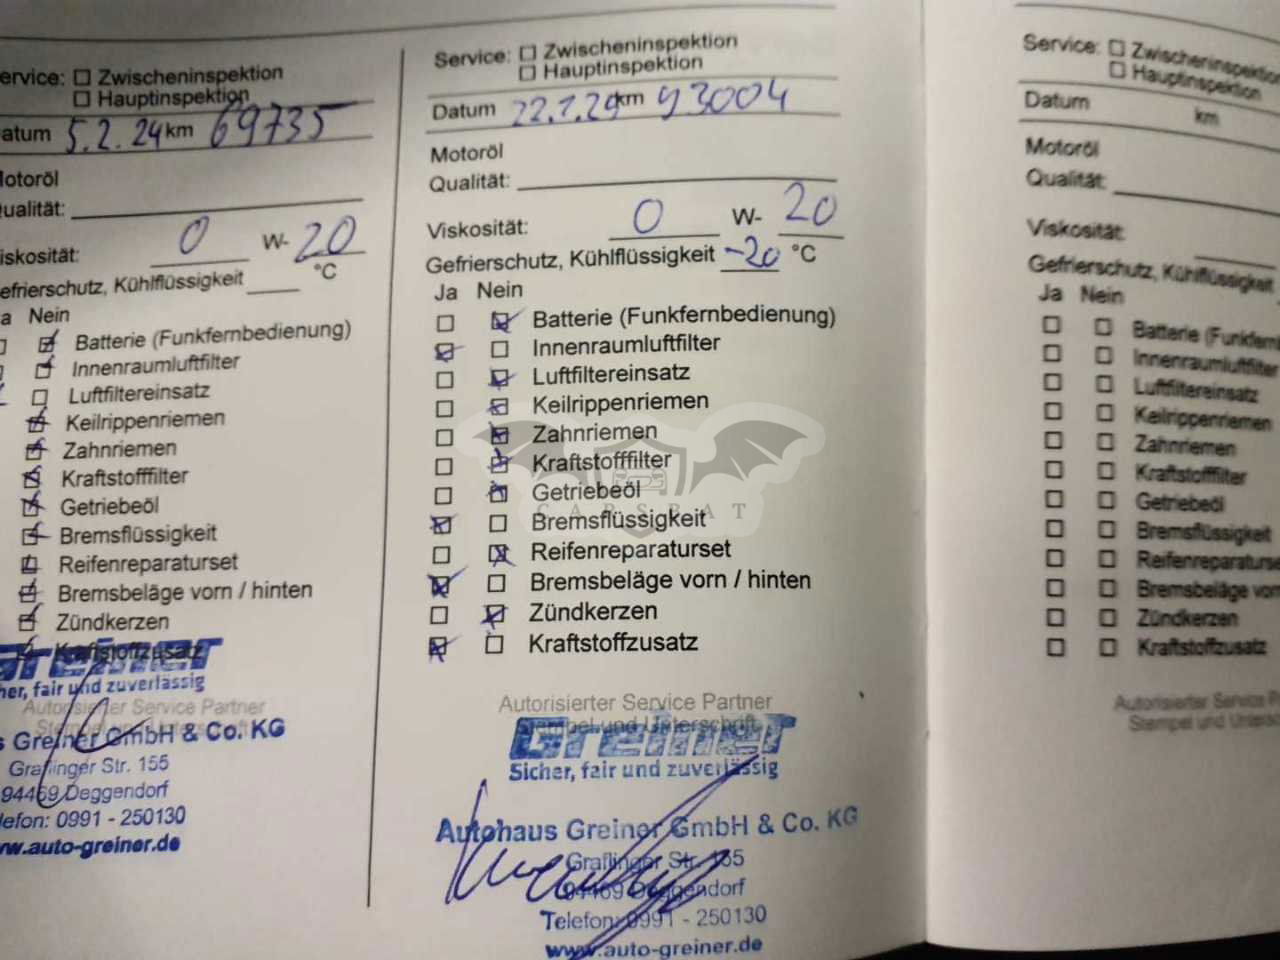 ervice: Zwischeninspektion
Hauptinspektion
atum 5.2.24 km 69735
otoröl
ualität:
iskosität: 0 W- 20
efrierschutz, Kühlflüssigkeit °C
a Nein
Batterie (Funkfernbedienung)
Innenraumluftfilter
Luftfiltereinsatz
Keilrippenriemen
Zahnriemen
Kraftstofffilter
Getriebeöl
Bremsflüssigkeit
Reifenreparaturset
Bremsbeläge vorn / hinten
Zündkerzen
Kraftstoffzusatz
Greiner
her, fair und zuverlässig
Autorisierter Service Partner
Stempel und Unterschrift
s Greiner GmbH & Co. KG
Graflinger Str. 155
94469 Deggendorf
lefon: 0991 - 250130
ww.auto-greiner.de
Service: Zwischeninspektion
Hauptinspektion
Datum 22.7.24 km 93004
Motoröl
Qualität:
Viskosität: 0 W- 20
Gefrierschutz, Kühlflüssigkeit -20 °C
Ja Nein
Batterie (Funkfernbedienung)
Innenraumluftfilter
Luftfiltereinsatz
Keilrippenriemen
Zahnriemen
Kraftstofffilter
Getriebeöl
CARSBAT
Bremsflüssigkeit
Reifenreparaturset
Bremsbeläge vorn / hinten
Zündkerzen
Kraftstoffzusatz
Autorisierter Service Partner
Stempel und Unterschrift
Greiner
Sicher, fair und zuverlässig
Autohaus Greiner GmbH & Co. KG
Graflinger Str. 155
94469 Deggendorf
Telefon: 0991 - 250130
www.auto-greiner.de
Service: Zwischeninspektion
Hauptinspektion
Datum km
Motoröl
Qualität:
Viskosität:
Gefrierschutz, Kühlflüssigkeit
Ja Nein
Batterie (Funkfern
Innenraumluftfilter
Luftfiltereinsatz
Keilrippenriemen
Zahnriemen
Kraftstofffilter
Getriebeöl
Bremsflüssigkeit
Reifenreparaturse
Bremsbeläge vorn
Zündkerzen
Kraftstoffzusatz
Autorisierter Service P
Stempel und Unters